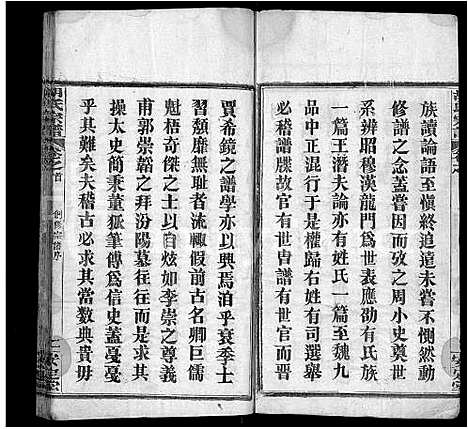 族讀論語至愼終追遠未嘗不惻然動
修譜之念蓋嘗因而攷之周小史奠世
系辨昭穆漢龍門爲世表應劭有氏族
一篇王潛夫論亦有姓氏一篇至魏九
品中正混行于是權歸右姓有司選舉
必稽譜牒故官有世冑譜有世官而晉
賈希鏡之譜學亦以興焉洎乎衰季士
習頽靡無恥者流輙假前古名卿巨儒
魁梧奇傑之士以自炫如李崇之尊義
甫郭崇韜之拜汾陽墓往往而是求其
操太史簡秉董狐筆傳爲信史蓋戞戞
乎其難矣夫稽古必求其當數典貴毋
胡氏宗譜
卷之首
創修宗譜序
二
安定